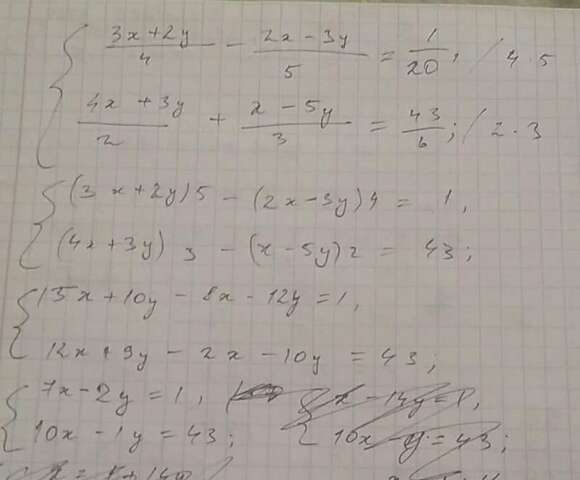 { (3x+2y)/4 - (2x-3y)/5 = 1/20, / 4·5
(4x+3y)/2 + (x-5y)/3 = 43/6; / 2·3
{ (3x+2y)5 - (2x-3y)4 = 1,
(4x+3y)3 - (x-5y)2 = 43;
{ 15x+10y-8x-12y=1,
12x+9y-2x-10y=43;
{ 7x-2y=1,
10x-1y=43;
{ x-14y=1,
10x-y=43;